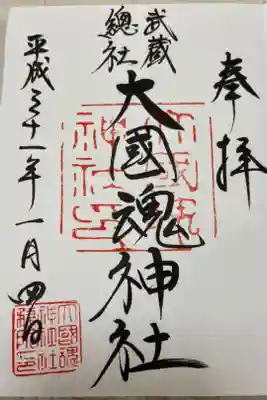 奉拝
武蔵
總社
大國魂神社
平成三十一年一月四日
大國魂
神社印
大國魂
神社